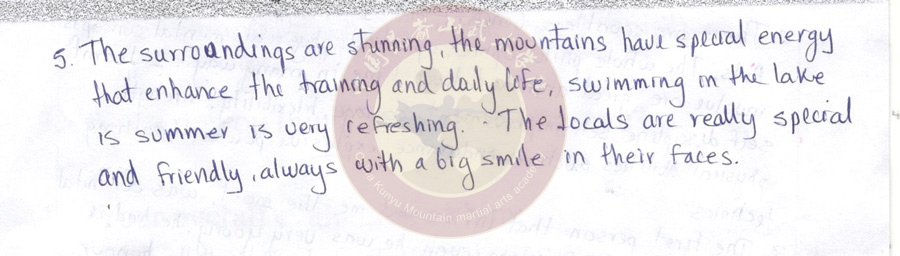 5. The surroundings are stunning, the mountains have special energy
that enhance the training and daily life, swimming in the lake
is summer is very refreshing. The locals are really special
and friendly, always with a big smile in their faces.
Kunyu Mountain martial arts academy